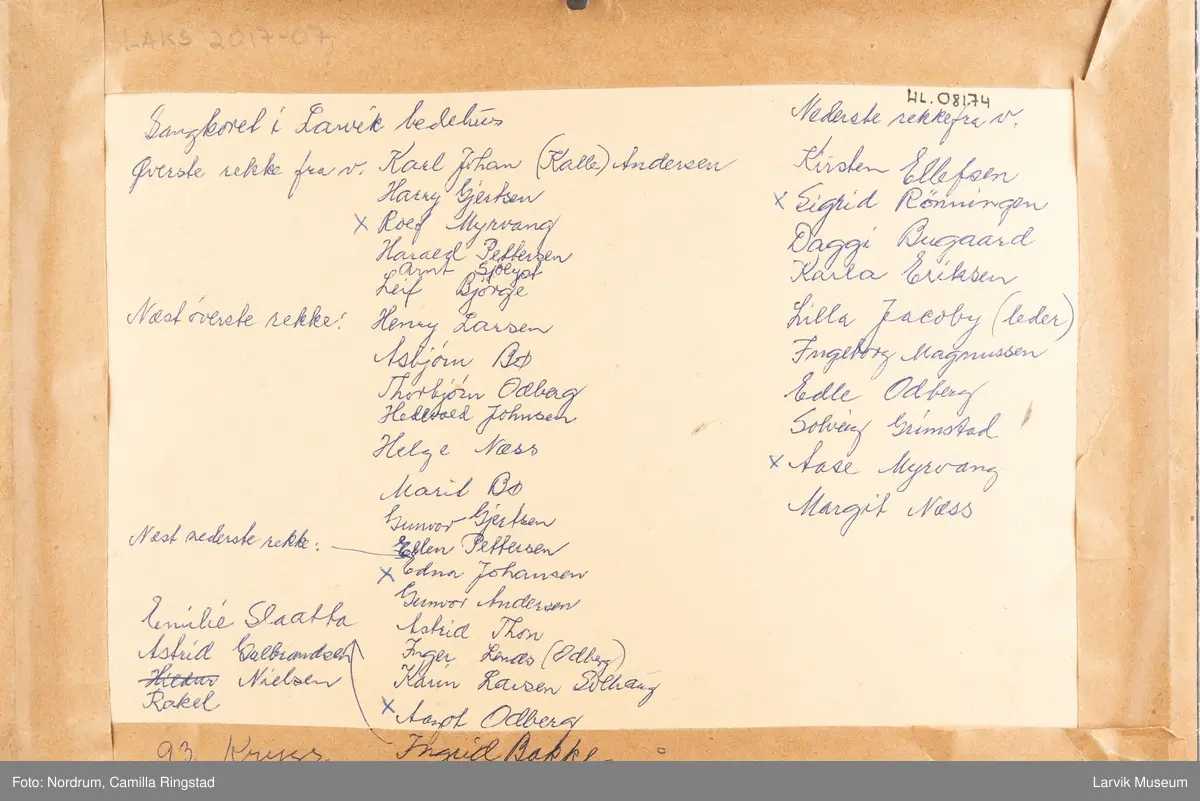 LAKS 2017-07
HL.08174
Sangkoret i Larvik bedehus
Øverste rekke fra v. Karl Johan (Kalle) Andersen
Harry Gjertsen
x Rolf Myrvang
Harald Pettersen
Arnt Sjølyst
Leif Bjørge
Næst øverste rekke: Henry Larsen
Asbjørn Bø
Thorbjørn Odberg
Johnsen
Helge Næss
Marit Bø
Gunvor Gjertsen
Næst nederste rekke: Ellen Pettersen
x Edna Johansen
Gunvor Andersen
Astrid Thon
Inger (Odberg)
Karin Larsen Solhaug
x Odberg
Ingrid Bakke
Emilie Slaatta
Astrid Gulbrandsen
Hildur Nielsen
Rakel
93
Nederste rekke fra v.
Kirsten Ellefsen
x Sigrid Rönningen
Daggi Bugaard
Karla Eriksen
Lilla Jacoby (leder)
Ingeborg Magnussen
Edle Odberg
Solveig Grimstad
x Aase Myrvang
Margit Næss
Foto: Nordrum, Camilla Ringstad
Larvik Museum